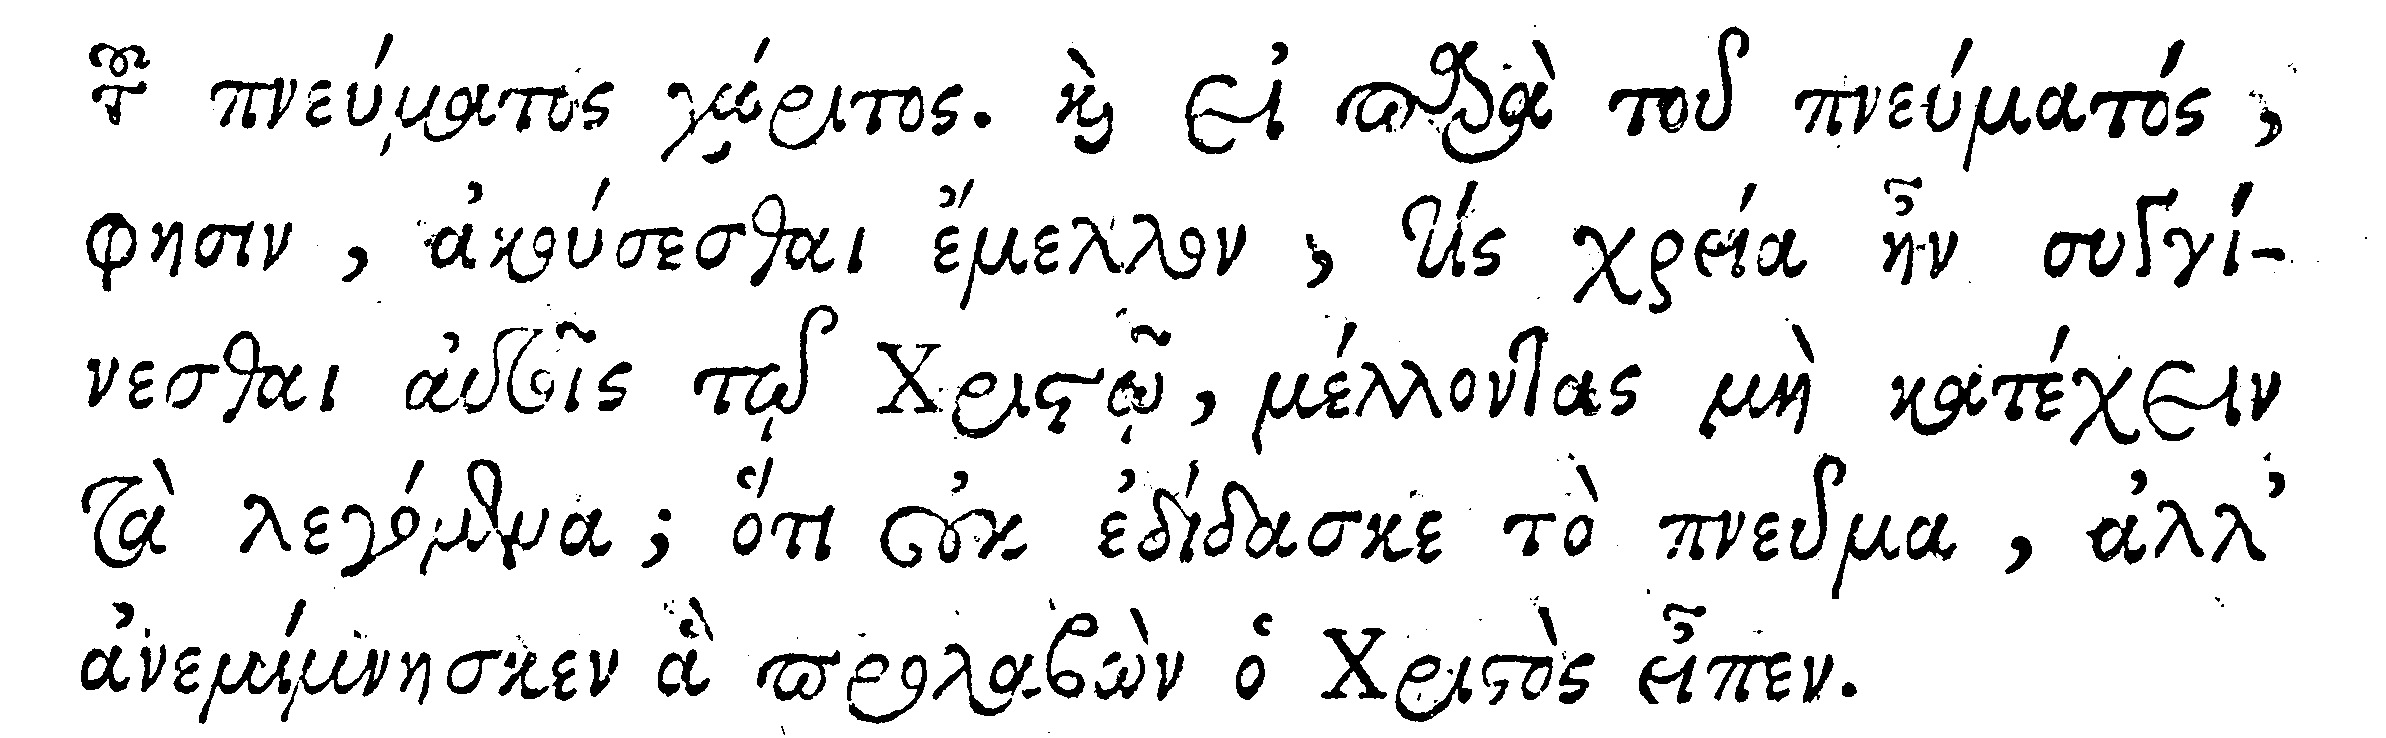 τοῦ πνεύματος χάριτος. καὶ εἰ παρὰ τοῦ πνεύματός,
φησιν, ἀκούσεσθαι ἔμελλον, τίς χρεία ἦν συγγί-
νεσθαι αὐτοῖς τῷ Χριστῷ, μέλλοντας μὴ κατέχειν
τὰ λεγόμενα; ὅτι οὐκ ἐδίδασκε τὸ πνεῦμα, ἀλλ'
ἀνεμίμνησκεν ἃ προλαβὼν ὁ Χριστὸς εἶπεν.